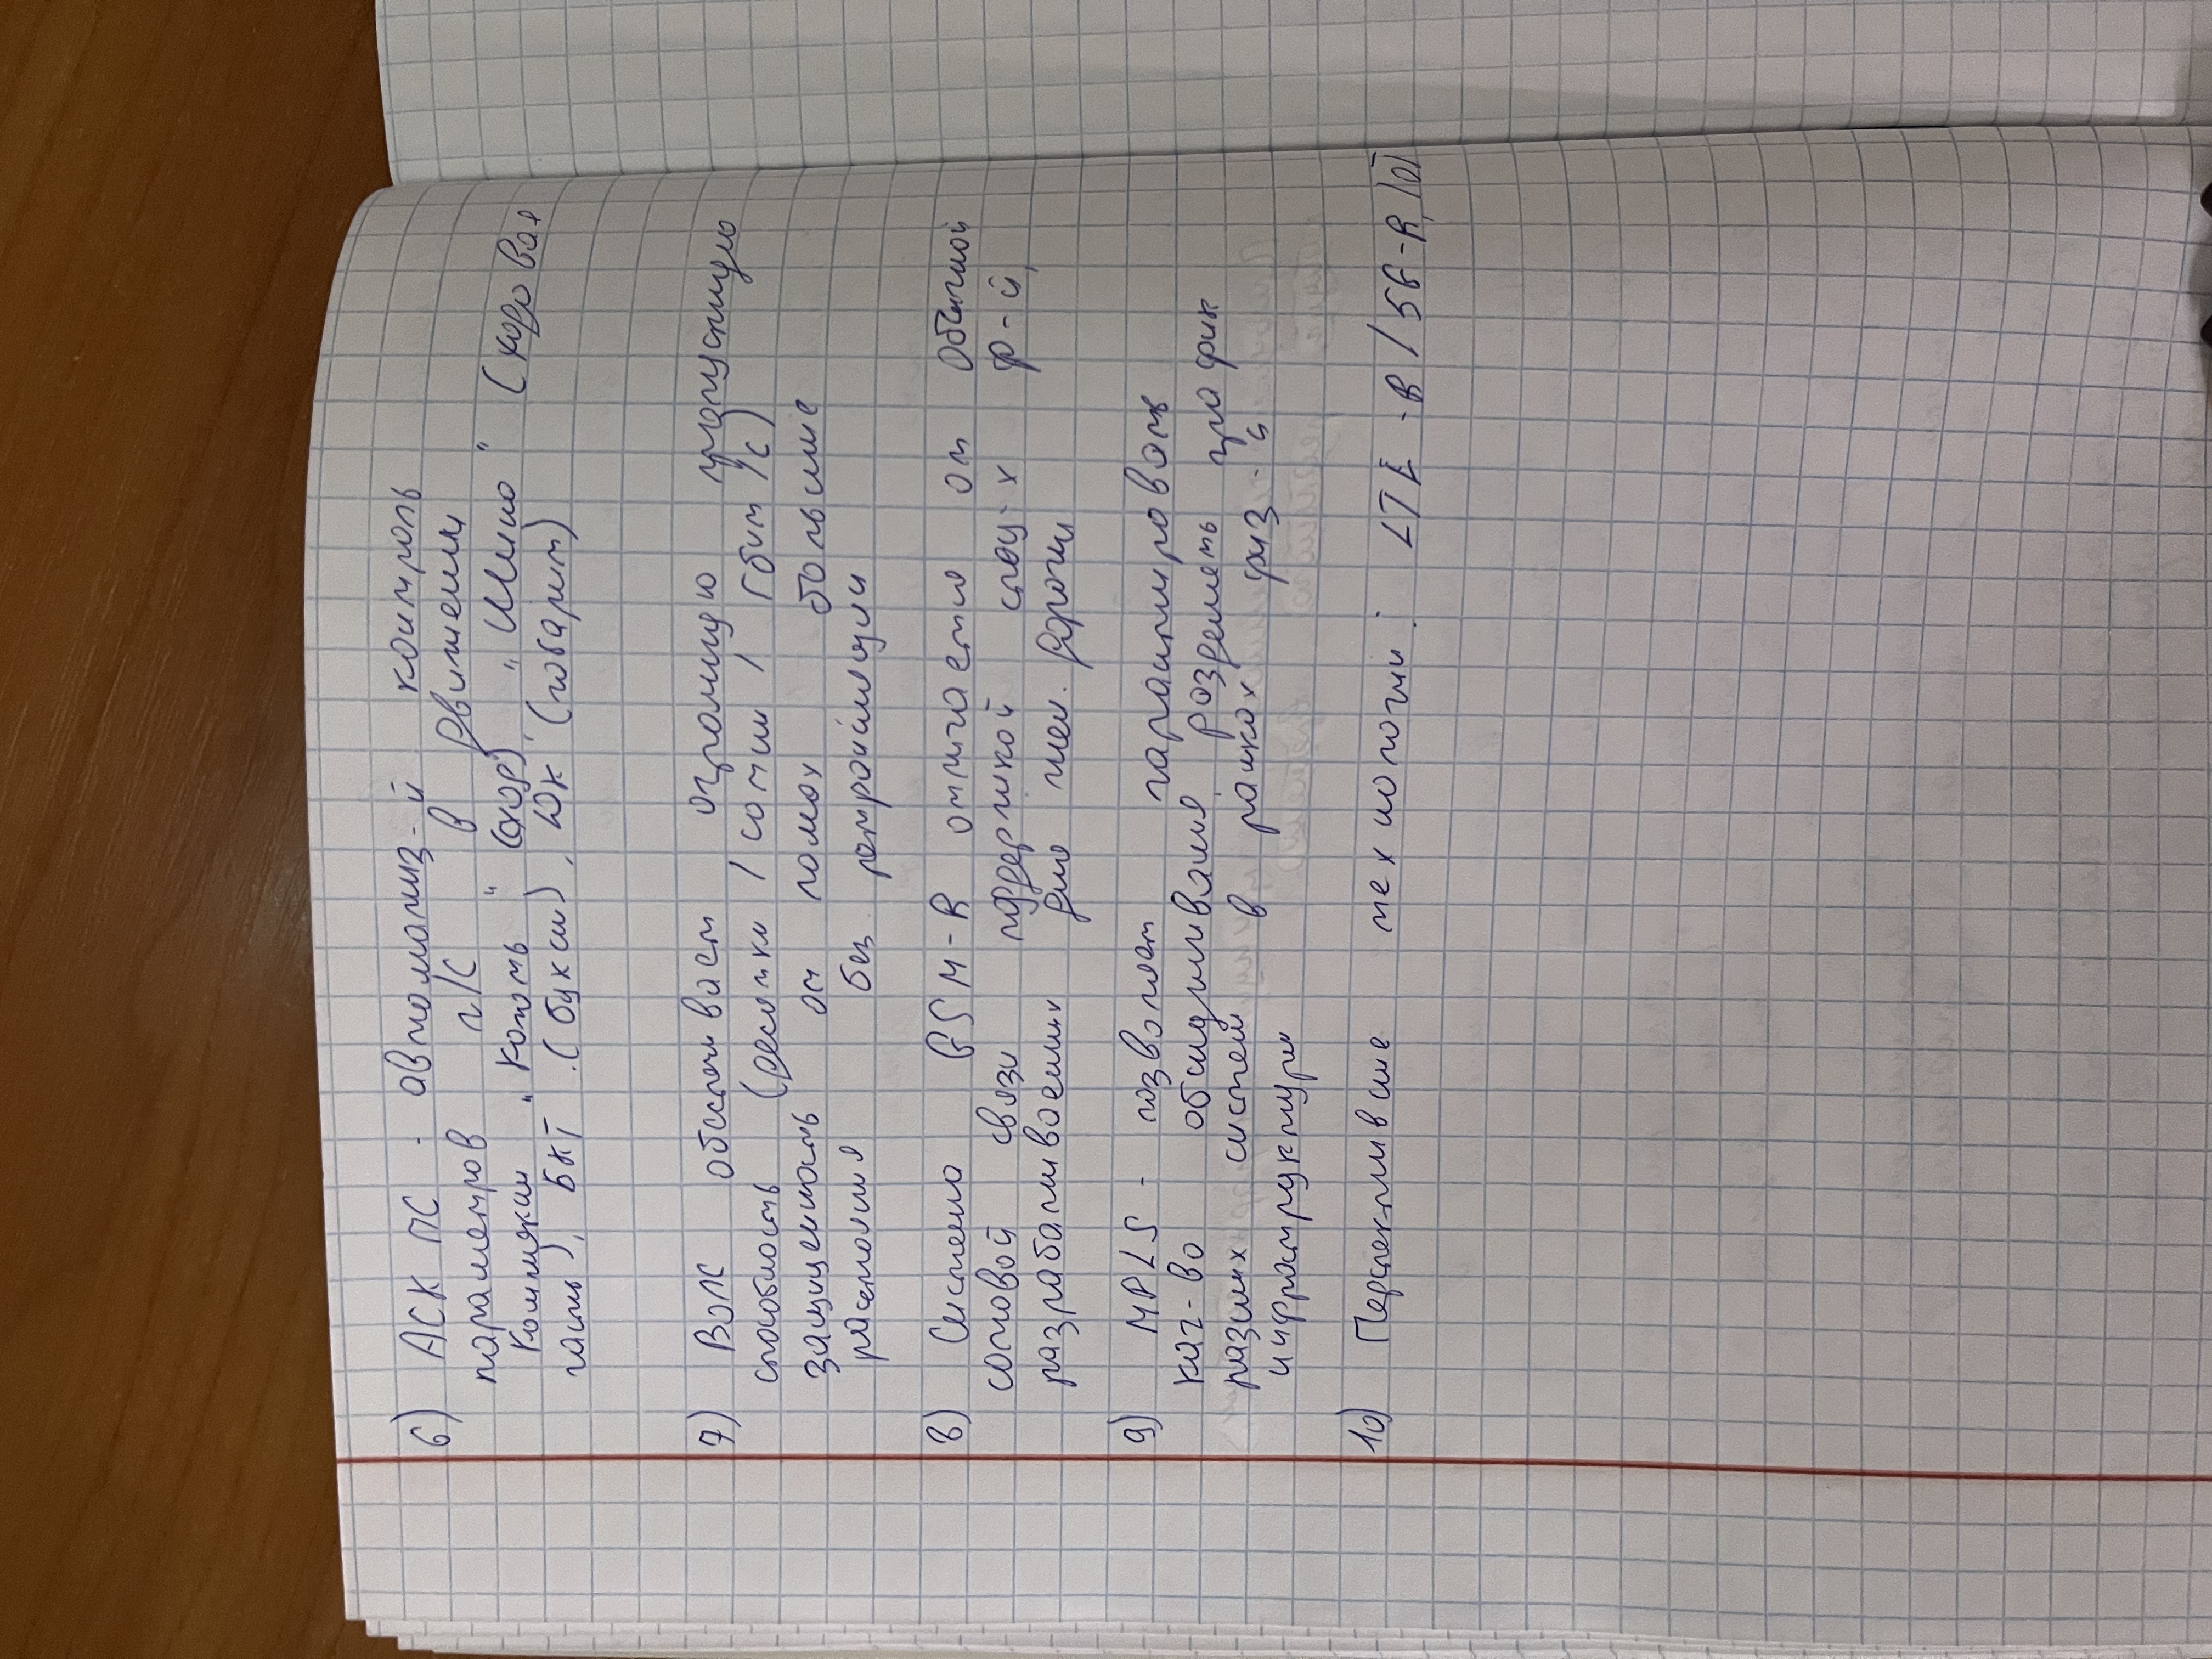 6) АСК ПС - автоматиз-й контроль
параметров п/с в движении
Комплексы "Коготь" (скор), "Шина" (ходовая
часть), БКТ (буксы), ЮК (габарит)
7) ВОЛС обеспечивает огромную пропускную
способность (десятки / сотни / Гбит/с)
защищенность от помех большие
расстояния без ретрансляции
8) Система GSM-R отличается от обычной
сотовой связи поддержкой спец-х ф-й,
разрабатываемых для жел. дороги
9) MPLS - позволяет гарантировать
кач-во обслуживания, разделять трафик
разных систем в рамках физ-й
инфраструктуры
10) Перспективные технологии: LTE-R / 5G-R,